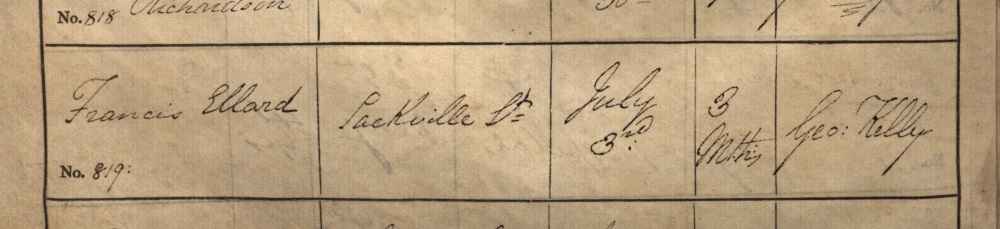 Richardson
No. 818
Francis Ellard
Sackville St
July
3rd
3
Mths
Geo: Kelly
No. 819: